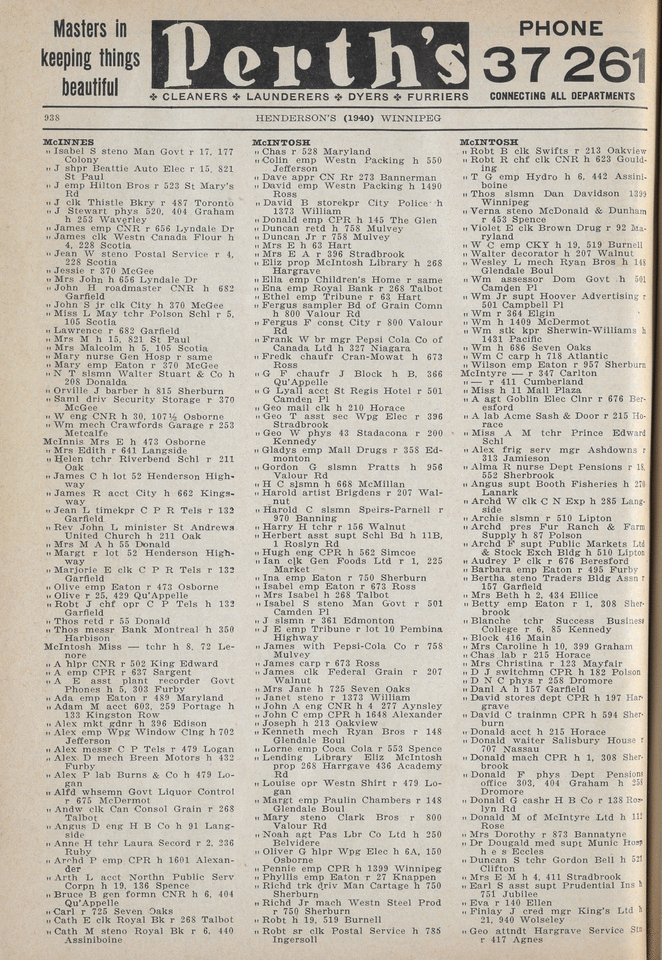 Masters in
keeping things
beautiful
Perth's
CLEANERS LAUNDERERS DYERS FURRIERS
PHONE
37 261
CONNECTING ALL DEPARTMENTS
938
HENDERSON'S (1940) WINNIPEG
McINNES
" Isabel S steno Man Govt r 17, 177
Colony
" J shpr Beattie Auto Elec r 15, 821
St Paul
" J emp Hilton Bros r 523 St Mary's
Rd
" J clk Thistle Bkry r 487 Toronto
" J Stewart phys 520, 404 Graham
h 253 Waverley
" James emp CNR r 656 Lyndale Dr
" James clk Westn Canada Flour h
4, 228 Scotia
" Jean W steno Postal Service r 4,
228 Scotia
" Jessie r 370 McGee
" Mrs John h 656 Lyndale Dr
" John H roadmaster CNR h 682
Garfield
" John S jr clk City h 370 McGee
" Miss L May tchr Polson Schl r 5,
105 Scotia
" Lawrence r 682 Garfield
" Mrs M h 15, 821 St Paul
" Mrs Malcolm h 5, 105 Scotia
" Mary nurse Gen Hosp r same
" Mary emp Eaton r 370 McGee
" N T slsmn Walter Stuart & Co h
208 Donalda
" Orville J barber h 815 Sherburn
" Saml driv Security Storage r 370
McGee
" W eng CNR h 30, 107½ Osborne
" Wm mech Crawfords Garage r 253
Metcalfe
McInnis Mrs E h 473 Osborne
" Mrs Edith r 641 Langside
" Helen tchr Riverbend Schl r 211
Oak
" James C h lot 52 Henderson High-
way
" James R acct City h 662 Kings-
way
" Jean L timekpr C P R Tels r 132
Garfield
" Rev John L minister St Andrews
United Church h 211 Oak
" Mrs M A h 55 Donald
" Margt r lot 52 Henderson High-
way
" Marjorie E clk C P R Tels r 132
Garfield
" Olive emp Eaton r 473 Osborne
" Olive r 25, 429 Qu'Appelle
" Robt J chf opr C P Tels h 132
Garfield
" Thos retd r 55 Donald
" Thos messr Bank Montreal h 350
Harbison
McIntosh Miss — tchr h 8, 72 Le-
nore
" A hlpr CNR r 502 King Edward
" A emp CPR r 637 Sargent
" A E asst plant recorder Govt
Phones h 5, 303 Furby
" Ada emp Eaton r 489 Maryland
" Adam M acct 603, 259 Portage h
133 Kingston Row
" Alex mkt gdnr h 396 Edison
" Alex emp Wpg Window Clng h 702
Jefferson
" Alex messr C P Tels r 479 Logan
" Alex D mech Breen Motors h 432
Furby
" Alex P lab Burns & Co h 479 Lo-
gan
" Alfd whsemn Govt Liquor Control
r 675 McDermot
" Andw clk Can Consol Grain r 268
Talbot
" Angus D eng H B Co h 91 Lang-
side
" Anne H tchr Laura Secord r 2, 236
Ruby
" Archd P emp CPR h 1601 Alexan-
der
" Arth L acct Northn Public Serv
Corpn h 19, 136 Spence
" Bruce B gen formn CNR h 6, 404
Qu'Appelle
" Carl r 725 Seven Oaks
" Cath E clk Royal Bk r 268 Talbot
" Cath M steno Royal Bk r 6, 440
Assiniboine
McINTOSH
" Chas r 528 Maryland
" Colin emp Westn Packing h 550
Jefferson
" Dave appr CN Rr 273 Bannerman
" David emp Westn Packing h 1490
Ross
" David B storekpr City Police h
1373 William
" Donald emp CPR h 145 The Glen
" Duncan retd h 758 Mulvey
" Duncan Jr r 758 Mulvey
" Mrs E h 63 Hart
" Mrs E A r 396 Stradbrook
" Eliz prop McIntosh Library h 268
Hargrave
" Ella emp Children's Home r same
" Ena emp Royal Bank r 268 Talbot
" Ethel emp Tribune r 63 Hart
" Fergus sampler Bd of Grain Comn
h 800 Valour Rd
" Fergus F const City r 800 Valour
Rd
" Frank W br mgr Pepsi Cola Co of
Canada Ltd h 327 Niagara
" Fredk chaufr Cran-Mowat h 673
Ross
" G F chaufr J Block h B, 366
Qu'Appelle
" G Lyall acct St Regis Hotel r 501
Camden Pl
" Geo mail clk h 210 Horace
" Geo T asst sec Wpg Elec r 396
Stradbrook
" Geo W phys 43 Stadacona r 200
Kennedy
" Gladys emp Mall Drugs r 358 Ed-
monton
" Gordon G slsmn Pratts h 956
Valour Rd
" H C slsmn h 668 McMillan
" Harold artist Brigdens r 207 Wal-
nut
" Harold C slsmn Speirs-Parnell r
970 Banning
" Harry H tchr r 156 Walnut
" Herbert asst supt Schl Bd h 11B,
1 Roslyn Rd
" Hugh eng CPR h 562 Simcoe
" Ian clk Gen Foods Ltd r 1, 225
Market
" Ina emp Eaton r 750 Sherburn
" Isabel emp Eaton r 673 Ross
" Mrs Isabel h 268 Talbot
" Isabel S steno Man Govt r 501
Camden Pl
" J slsmn r 361 Edmonton
" J E emp Tribune r lot 10 Pembina
Highway
" James with Pepsi-Cola Co r 758
Mulvey
" James carp r 673 Ross
" James clk Federal Grain r 207
Walnut
" Mrs Jane h 725 Seven Oaks
" Janet steno r 1373 William
" John A eng CNR h 4 277 Aynsley
" John C emp CPR h 1648 Alexander
" Joseph h 213 Oakview
" Kenneth mech Ryan Bros r 148
Glendale Boul
" Lorne emp Coca Cola r 553 Spence
" Lending Library Eliz McIntosh
prop 268 Harrgave 436 Academy
Rd
" Louise opr Westn Shirt r 479 Lo-
gan
" Margt emp Paulin Chambers r 148
Glendale Boul
" Mary steno Clark Bros r 800
Valour Rd
" Noah agt Pas Lbr Co Ltd h 250
Belvidere
" Oliver G hlpr Wpg Elec h 6A, 150
Osborne
" Pennie emp CPR h 1399 Winnipeg
" Phyllis emp Eaton r 27 Knappen
" Richd trk driv Man Cartage h 750
Sherburn
" Richd Jr mach Westn Steel Prod
r 750 Sherburn
" Robt h 19, 519 Burnell
" Robt sr clk Postal Service h 785
Ingersoll
McINTOSH
" Robt B clk Swifts r 213 Oakview
" Robt R chf clk CNR h 623 Gould-
ing
" T G emp Hydro h 6, 442 Assini-
boine
" Thos slsmn Dan Davidson 1399
Winnipeg
" Verna steno McDonald & Dunham
r 453 Spence
" Violet E clk Brown Drug r 92 Ma-
ryland
" W C emp CKY h 19, 519 Burnell
" Walter decorator h 207 Walnut
" Wesley L mech Ryan Bros h 148
Glendale Boul
" Wm assessor Dom Govt h 501
Camden Pl
" Wm Jr supt Hoover Advertising r
501 Campbell Pl
" Wm r 364 Elgin
" Wm h 1409 McDermot
" Wm stk kpr Sherwin-Williams h
1431 Pacific
" Wm h 686 Seven Oaks
" Wm C carp h 718 Atlantic
" Wilson emp Eaton r 957 Sherburn
McIntyre — r 347 Carlton
" — r 411 Cumberland
" Miss h 11 Mall Plaza
" A agt Goblin Elec Clnr r 676 Ber-
esford
" A lab Acme Sash & Door r 215 Ho-
race
" Miss A M tchr Prince Edward
Schl
" Alex frig serv mgr Ashdowns r
313 Jamieson
" Alma R nurse Dept Pensions r 18,
552 Sherbrook
" Angus supt Booth Fisheries h 270
Lanark
" Archd W clk C N Exp h 285 Lang-
side
" Archie slsmn r 510 Lipton
" Archd pres Fur Ranch & Farm
Supply h 87 Polson
" Archd F supt Public Markets Ltd
& Stock Exch Bldg h 510 Lipton
" Audrey P clk r 676 Beresford
" Barbara emp Eaton r 495 Furby
" Bertha steno Traders Bldg Assn r
157 Garfield
" Mrs Beth h 2, 434 Ellice
" Betty emp Eaton r 1, 308 Sher-
brook
" Blanche tchr Success Business
College r 6, 85 Kennedy
" Block 416 Main
" Mrs Caroline h 10, 399 Graham
" Chas lab r 215 Horace
" Mrs Christina r 123 Mayfair
" D J switchmn CPR h 182 Polson
" D N C phys r 258 Dromore
" Danl A h 157 Garfield
" David stores dept CPR h 197 Har-
grave
" David C trainmn CPR h 594 Sher-
burn
" Donald acct h 215 Horace
" Donald waiter Salisbury House r
707 Nassau
" Donald mach CPR h 1, 308 Sher-
brook
" Donald F phys Dept Pensions
office 303, 404 Graham h 258
Dromore
" Donald G cashr H B Co r 138 Ros-
lyn Rd
" Donald M of McIntyre Ltd h 112
Rose
" Mrs Dorothy r 873 Bannatyne
" Dr Dougald med supt Munic Hosp
h e s Eccles
" Duncan S tchr Gordon Bell h 521
Clifton
" Mrs E M h 4, 411 Stradbrook
" Earl S asst supt Prudential Ins h
751 Jubilee
" Eva r 140 Ellen
" Finlay J cred mgr King's Ltd h
21, 940 Wolseley
" Geo attndt Hargrave Service Stn
r 417 Agnes